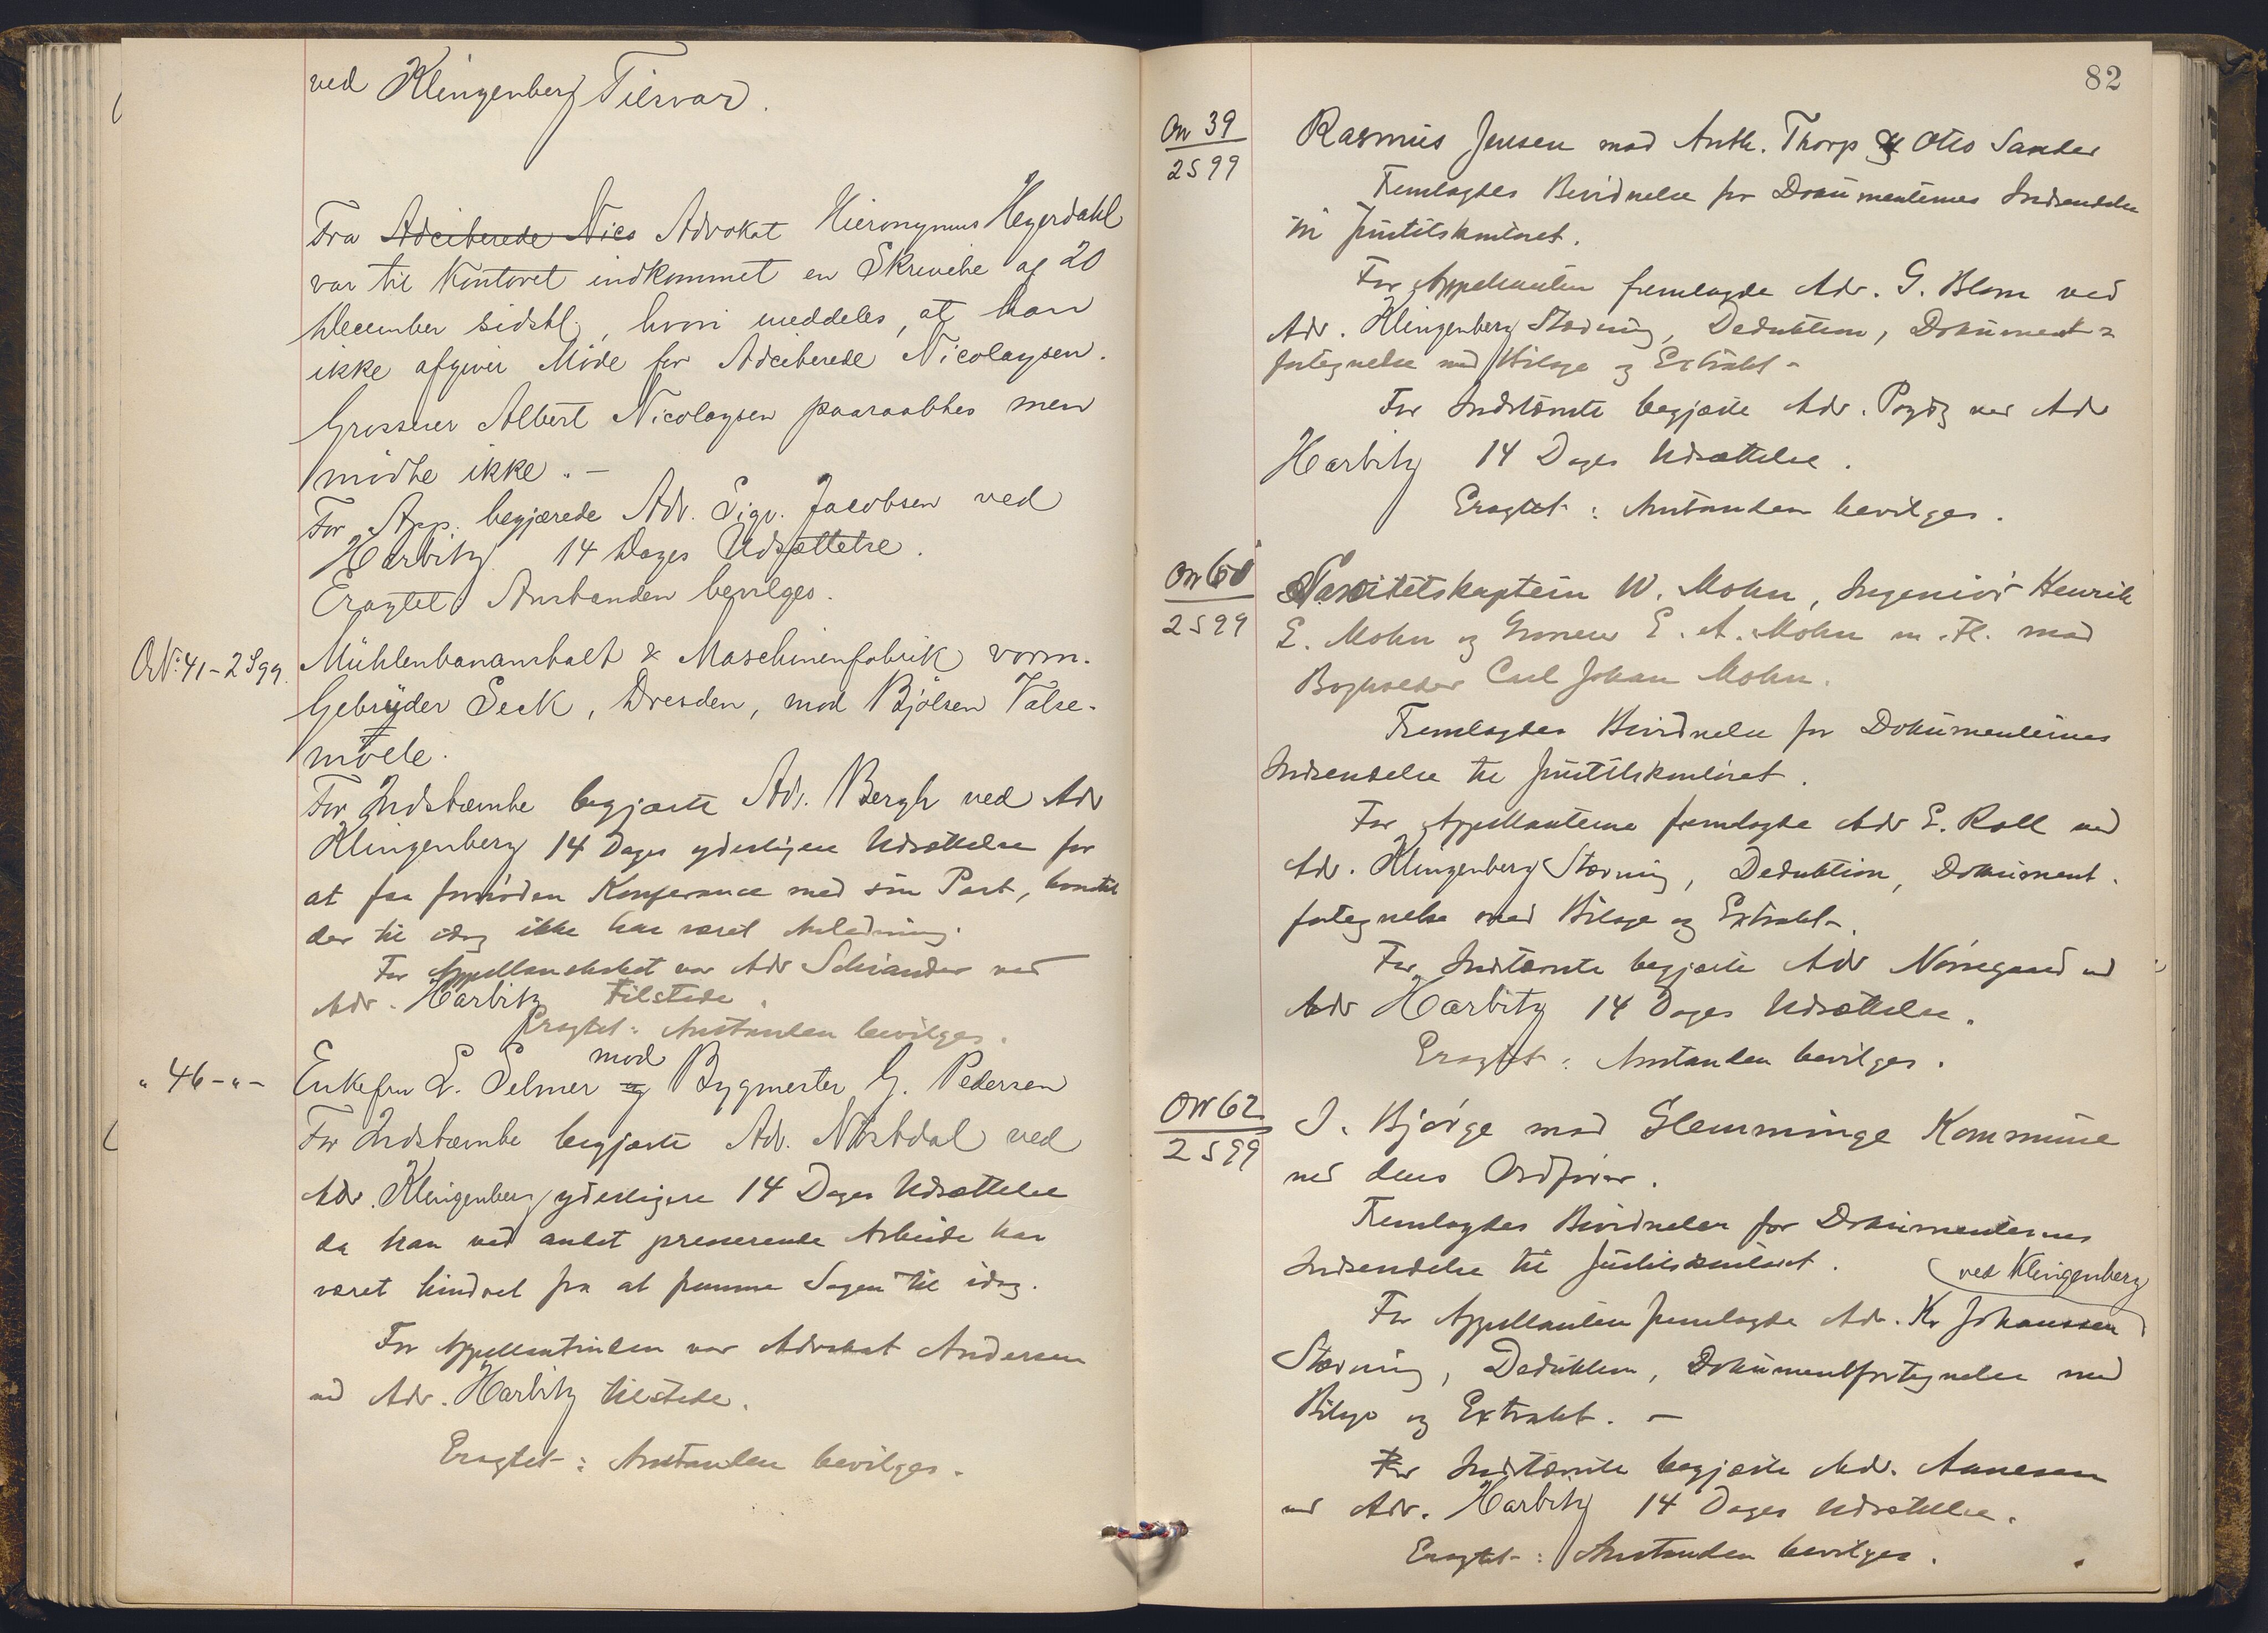 ved Klingenberg Tilsvar.
Fra Adciterede Nico Advokat Hieronymus Heyerdahl
var til Kontoret indkommet en Skrivelse af 20
December sidstl., hvori meddeles, at han
ikke afgiver Møde for Adciterede Nicolaysen.
Grosserer Albert Nicolaysen paaraabtes men
mødte ikke. -
For App. begjærede Adv. Sigv. Jacobsen ved
Harbitz 14 Dages Udsættelse.
Eragtet Anstanden bevilges.
ON: 41-2S99. Mühlenbauanstalt & Maschinenfabrik vorm.
Gebrüder Seck, Dresden, mod Bjølsen Valse-
mølle.
For Indstævnte begjærte Adv. Bergh ved Adv
Klingenberg 14 Dages yderligere Udsættelse for
at faa fornøden Konferance med sin Part, hvortil
der til idag ikke har været Anledning.
For Appellantskabet var Adv Schiander ved
Adv. Harbitz tilstede.
Eragtet: Anstanden bevilges.
" 46-"- Enkefru L. Selmer og mod Bygmester G. Pedersen
For Indstævnte begjærte Adv. Nørstdal ved
Adv. Klingenberg yderligere 14 Dages Udsættelse
da han ved andet presserende Arbeide har
været hindret fra at fremme Sagen til idag.
For Appellantinden var Advokat Andersen
ved Adv. Harbitz tilstede.
Eragtet: Anstanden bevilges.
82
ON 39
2S99
Rasmus Jensen mod Anth. Thorp & Otto Sander
Fremlagdes Bevidnelse for Dokumenternes Indsendelse
til Justitskontoret.
For Appellanten fremlagde Adv. G. Blom ved
Adv. Klingenberg Stævning, Deduktion, Dokument-
fortegnelse med Bilage og Extrakt -
For Indstævnte begjærte Adv. ved Adv
Harbitz 14 Dages Udsættelse.
Eragtet: Anstanden bevilges.
ON 60
2S99
Sanitetskaptein W. Mohn, Ingeniør Henrik
E. Mohn og Grosserer E. A. Mohn m. Fl. mod
Bogholder Carl Johan Mohn.
Fremlagdes Bevidnelse for Dokumenternes
Indsendelse til Justitskontoret.
For Appellanterne fremlagde Adv E. Roll ved
Adv. Klingenberg Stævning, Deduktion, Dokument-
fortegnelse med Bilage og Extrakt.
For Indstævnte begjærte Adv Nørregaard ved
Adv Harbitz 14 Dages Udsættelse.
Eragtet: Anstanden bevilges.
ON 62
2S99
J. Bjørge mod Glemminge Kommune
ved dens Ordfører.
Fremlagdes Bevidnelse for Dokumenternes
Indsendelse til Justitskontoret.
ved Klingenberg
For Appellanten fremlagde Adv. Kr Johanssen
Stævning, Deduktion, Dokumentfortegnelse med
Bilage og Extrakt. -
For Indstævnte begjærte Adv. Aanesen
ved Adv. Harbitz 14 Dages Udsættelse.
Eragtet: Anstanden bevilges.